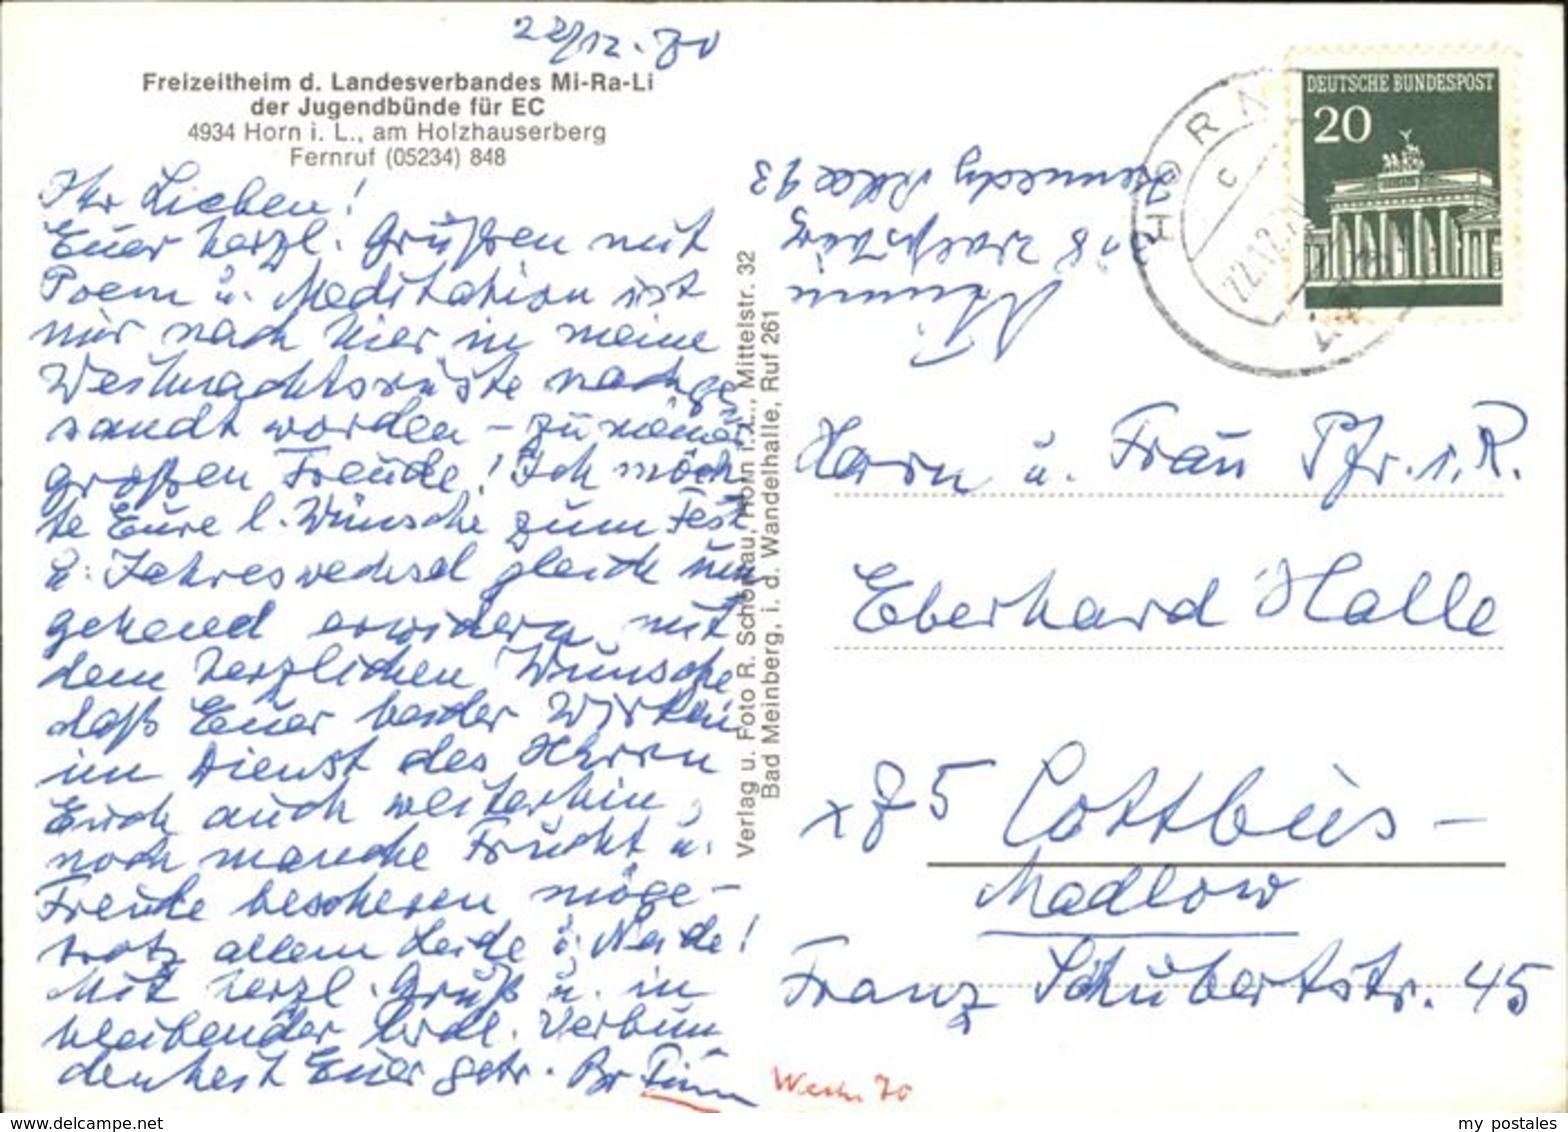 22/12.70
Freizeitheim d. Landesverbandes Mi-Ra-Li
der Jugendbünde für EC
4934 Horn i. L., am Holzhauserberg
Fernruf (05234) 848
Ihr Lieben!
Euer herzl. Grüßen mit
Poem u. Meditation ist
mir nach hier in meine
Weihnachtsrüste nachge
sandt worden - zu meiner
großen Freude! Ich möch
te Eure l. Wünsche zum Fest
u. Jahreswechsel gleich um
gehend erwidern mit
dem herzlichen Wunsche
daß Euer beider Wirken
im Dienst des Herrn
Euch auch weiterhin
noch manche Frucht u.
Freude bescheren möge -
trotz allem Leide u. Neide!
Mit herzl. Gruß u. in
bleibender brdl. Verbun
denheit Euer getr. Br
Verlag u. Foto R. Schönau, Horn i. L., Mittelstr. 32
Bad Meinberg, i. d. Wandelhalle, Ruf 261
Kennedy Allee 93
HORN
22.12.
DEUTSCHE BUNDESPOST
20
Herrn u. Frau Pfr. i. R.
Eberhard Halle
x 75 Cottbus -
Madlow
Franz Schubertstr. 45
Weihn. 70
my postales